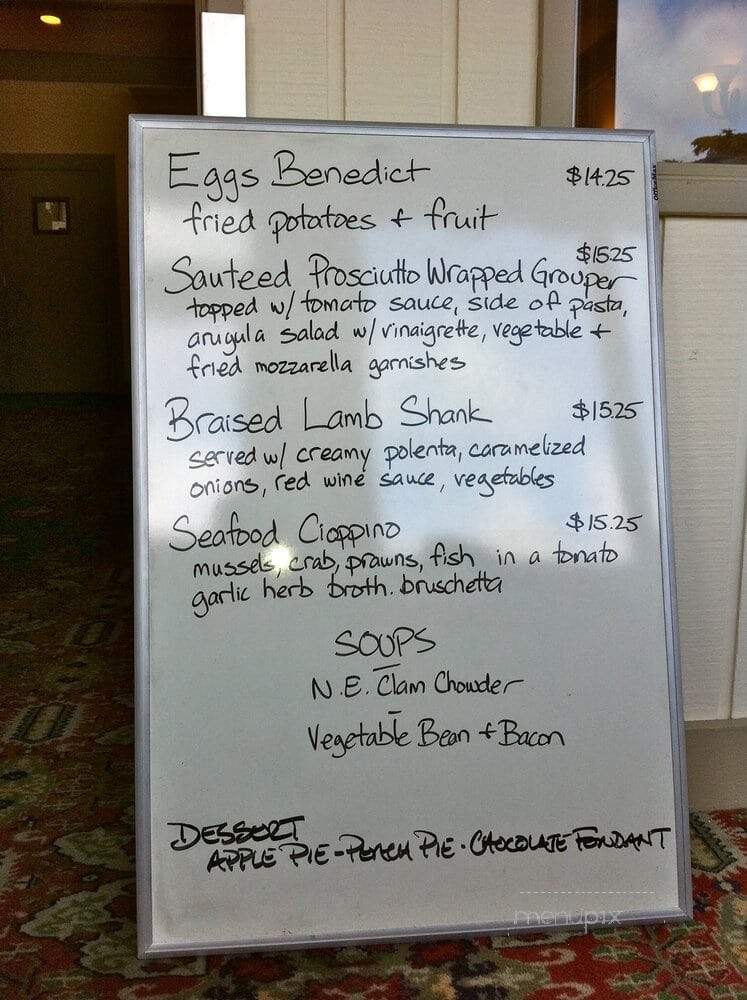 Eggs Benedict $14.25
fried potatoes + fruit
$15.25
Sauteed Prosciutto Wrapped Grouper
topped w/ tomato sauce, side of pasta,
arugula salad w/ vinaigrette, vegetable +
fried mozzarella garnishes
Braised Lamb Shank $15.25
served w/ creamy polenta, caramelized
onions, red wine sauce, vegetables
Seafood Cioppino $15.25
mussels, crab, prawns, fish in a tomato
garlic herb broth. bruschetta
SOUPS
N.E. Clam Chowder
Vegetable Bean + Bacon
DESSERT
APPLE PIE - PEACH PIE - CHOCOLATE FONDANT
menupix